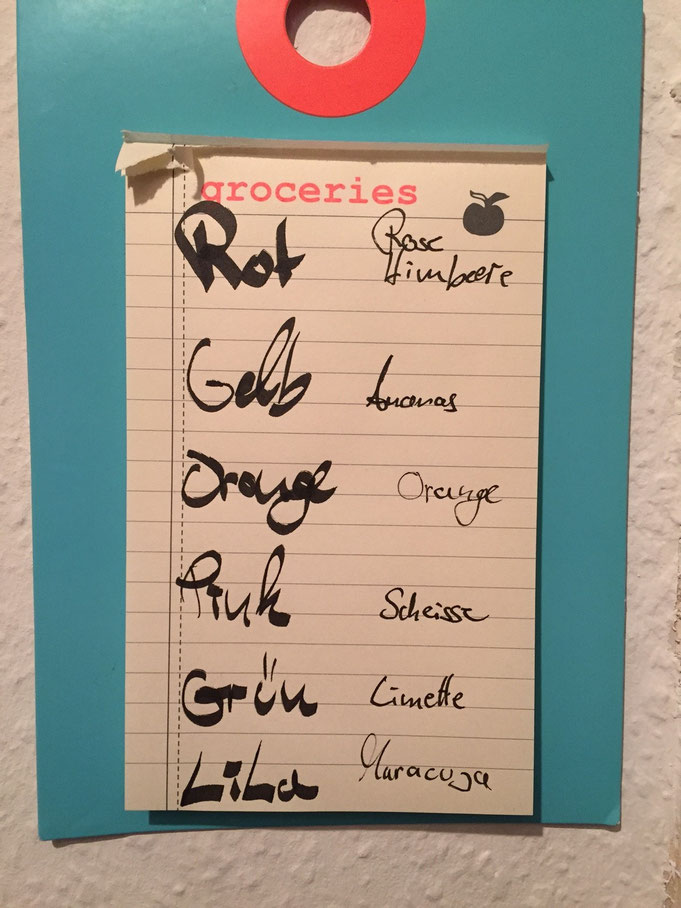 groceries
Rot Rose
Himbeere
Gelb Ananas
Orange Orange
Pink Scheisse
Grün Limette
Lila Maracuja